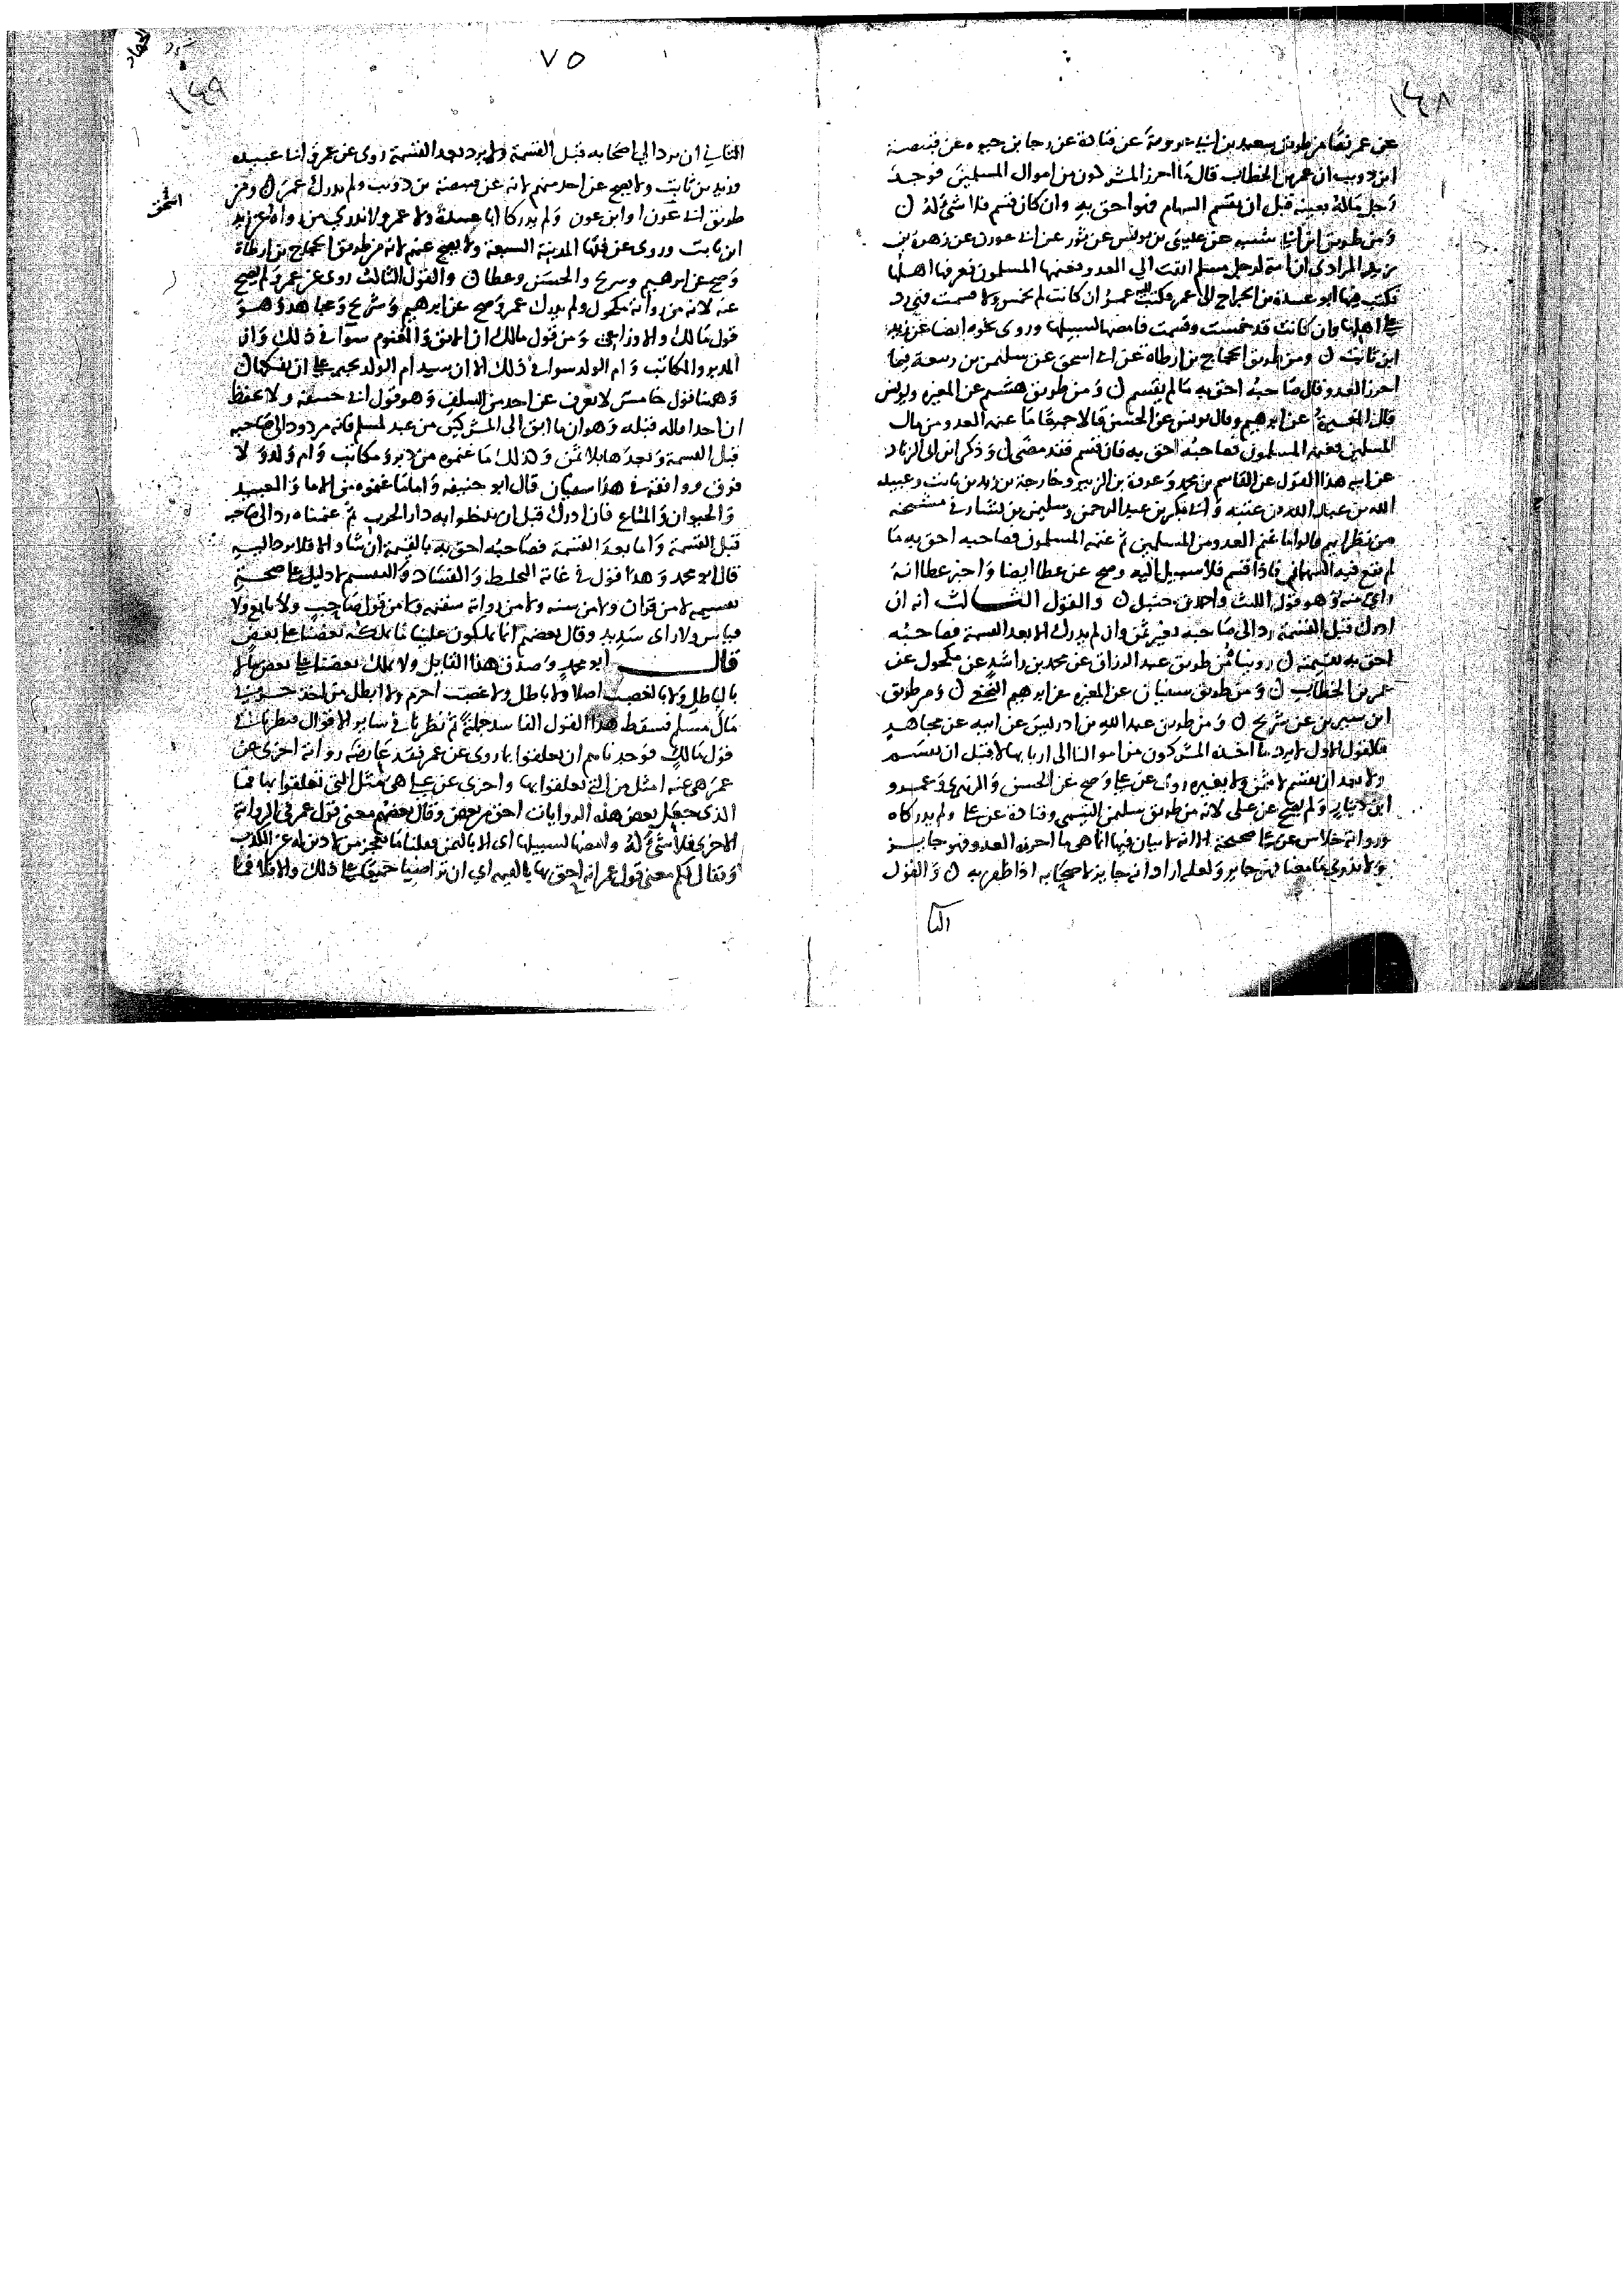 ١٤٨
عن عمر نصا من طريق سعيد بن ابي عروبة عن قتادة عن رجا بن حيوه عن قبيصة
ابن ذويب ان عمر بن الخطاب قال ما احرز المشركون من اموال المسلمين فوجد
رجل ماله بعينه قبل ان يقسم السهام فهو احق به وان كان قسم فلا شئ له ن
ومن طريق ابن ابي شيبه عن عيسى بن يونس عن ثور عن ابي عون عن زهرة بن
يزيد المرادي ان امة لرجل مسلم ابقت الي العدو فغنمها المسلمون فعرفها اهلها
فكتب فيها ابو عبيدة بن الجراح الى عمر فكتب عمر ان كانت لم تخمس ولا قسمت فهي رد
على اهلها وان كانت قد خمست وقسمت فامضها لسبيلها وروى نحوه ايضا عن زيد
ابن ثابت ن ومن طريق الحجاج بن ارطاة عن ابي اسحق عن سليمن بن ربيعة فيما
احرز العدو قال صاحبه احق به ما لم يقسم ن ومن طريق هشيم عن المغيره ويونس
قال المغيرة عن ابرهيم وقال يونس عن الحسن قالا جميعا ما غنمه العدو من مال
المسلمين فغنمه المسلمون فصاحبه احق به فان قسم فقد مضى ن وذكر ابن ابي الزناد
عن ابيه هذا القول عن القاسم بن محمد وعروة بن الزبير وخارجة بن زيد بن ثابت وعبيد
الله بن عبد الله بن عتبه وابي بكر بن عبد الرحمن وسليمن بن يسار في مشيخه
من نظرايهم قالوا ما غنم العدو من المسلمين ثم غنمه المسلمون فصاحبه احق به ما
لم تقع فيه السهمان فاذا قسم فلا سبيل اليه وصح عن عطا ايضا واخبر عطا انه
راي منه وهو قول الليث واحمد بن حنبل ن والقول الثالث انه ان
ادرك قبل القسمة رد الى صاحبه بغير ثمن وان لم يدرك الا بعد القسمة فصاحبه
احق به بقيمته ن روينا من طريق عبد الرزاق عن محمد بن راشد عن مكحول عن
عمر بن الخطاب ن ومن طريق سفيان عن المغيره عن ابرهيم النخعي ن ومن طريق
ابن سيرين عن شريح ن ومن طريق عبد الله بن ادريس عن ابيه عن مجاهد
فالقول الاول لا يرد ما اخذه المشركون من اموالنا الى اربابها لا قبل ان يقسم
ولا بعد ان يقسم لا بثمن ولا بغيره روى عن علي وصح عن الحسن والزهري وعمرو
ابن دينار ولم يصح عن علي لانه من طريق سليمن التيمي وقتادة عن علي ولم يدركاه
ورواية خلاس عن علي صحيحة الا انه لا بيان فيها انما هي ما احرزه العدو فهو جايز
ولا ندري ما معنا فهو جايز ولعله اراد انه جايز لاصحابه اذا ظفر به ن والقول
الثا
الجهاد
٧٥
١٤٩
الثاني ان يرد الي اصحابه قبل القسمة ولا يرد بعد القسمة روى عن عمر وابي عبيده
وزيد بن ثابت ولا يصح عن احد منهم لانه عن قبيصة بن ذويب ولم يدرك عمر ن ومن
طريق ابي عون او ابن عون ولم يدركا ابا عبيدة ولا عمر ولا ندري من رواه عن زيد
ابن ثابت وروى عن فقها المدينة السبعة ولا يصح عنهم لانه من طريق الحجاج بن ارطاة
وصح عن ابرهيم وشريح والحسن وعطا ن والقول الثالث روى عن عمر ولم يصح
عنه لانه من رواية مكحول ولم يدرك عمر وصح عن ابرهيم وشريح ومجاهد وهو
قول مالك والاوزاعي ومن قول مالك ان الابق والمغنوم سوا في ذلك وان
المدبر والمكاتب وام الولد سوا في ذلك الا ان سيد ام الولد يجبر على ان يفكها ن
وههنا قول خامس لا يعرف عن احد من السلف وهو قول ابي حنيفة ولا نحفظ
ان احدا قاله قبله وهو ان ما ابق الى المشركين من عبد لمسلم فانه مردود الى صاحبه
قبل القسمة وبعدها بلا ثمن وكذلك ما غنموه من مدبر ومكاتب وام ولد ولا
فرق ووافقه في هذا سفيان قال ابو حنيفه واما ما غنموه من الاما والعبيد
والحيوان والمتاع فان ادرك قبل ان يدخلوا به دار الحرب ثم غنمناه رد الى صاحبه
قبل القسمة واما بعد القسمة فصاحبه احق به بالقيمة ان شا والا فلا يرد اليه
قال ابو محمد وهذا قول في غاية التخليط والفساد والتقسيم لا دليل على صحة
تقسيمه لا من قران ولا من سنه ولا من رواية سقيمه ولا من قول صاحب ولا تابع ولا
قياس ولا راى سديد وقال بعضهم انما يملكون علينا ما يملكه بعضنا على بعض
قال ابو محمد وصدق هذا القايل ولا يملك بعضنا على بعض مالا
بالباطل ولا بالغصب اصلا ولا باطل ولا غصب احرم ولا ابطل من اخذ حربي
مال مسلم فسقط هذا القول الفاسد جملة ثم نظرنا في ساير الاقوال فنظرنا في
قول مالك فوجدناهم ان تعلقوا بما روى عن عمر فقد عارضته رواية اخرى عن
عمر هي عنه امثل من التي تعلقوا بها واخرى عن علي هي مثل التي تعلقوا بها فما
الذي جعل بعض هذه الروايات احق من بعض وقال بعضهم معنى قول عمر في الرواية
الاخرى فلا شئ له وامضها لسبيلها اى الا بالثمن فقلنا ما يعجز من لا دين له عن الكذب
ويقال لكم معنى قول عمر انه احق بها بالقيمه اي ان تراضيا جميعا على ذلك والا فلا فما